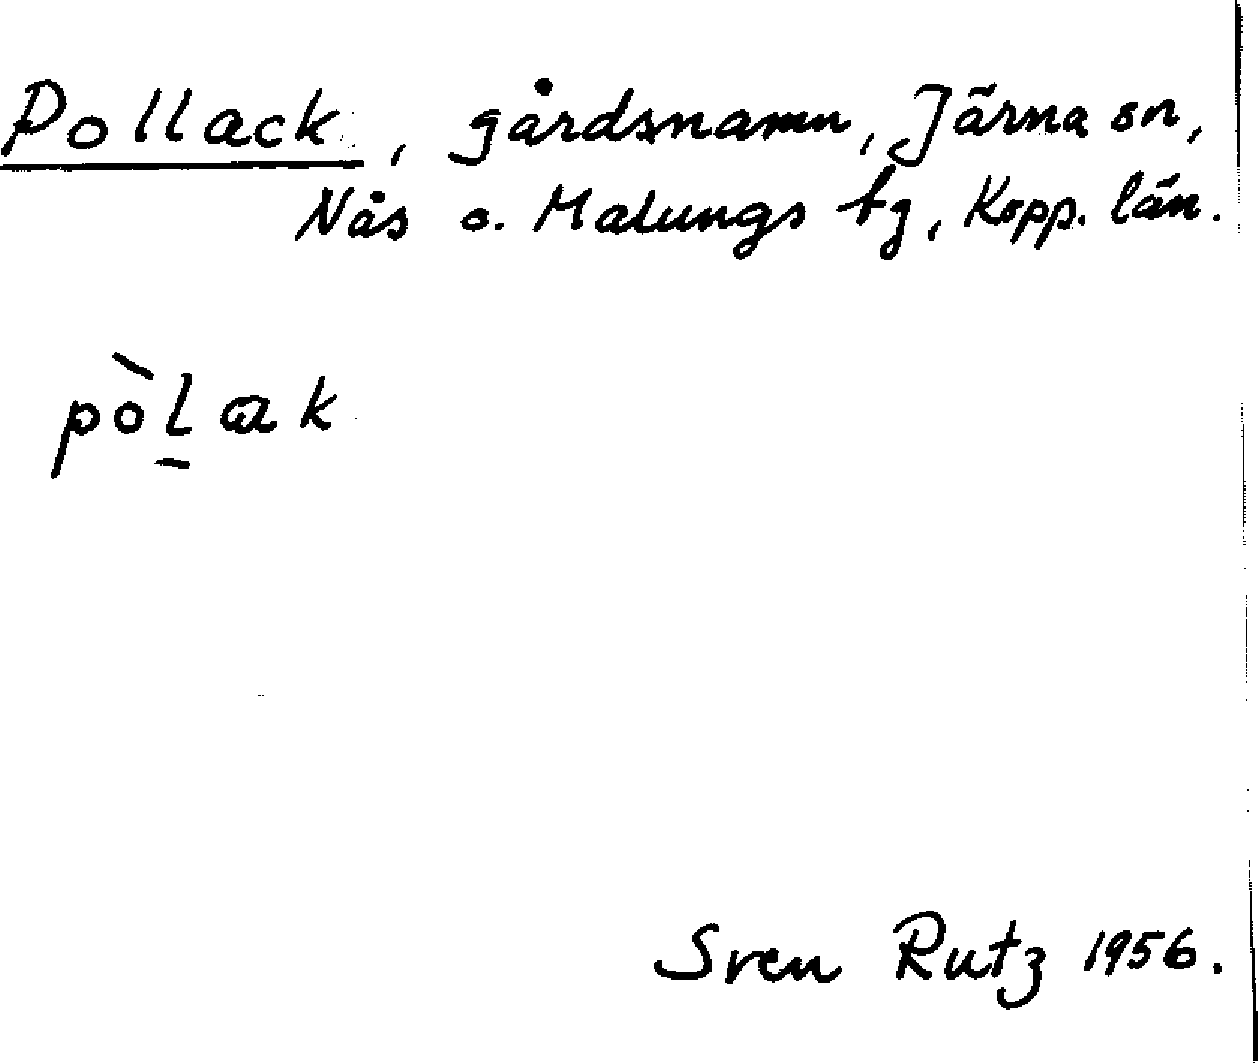 Pollack, gårdsnamn, Järna sn,
Nås o. Malungs tg, Kopp. län.
pòl̠ak
Sven Rutz 1956.